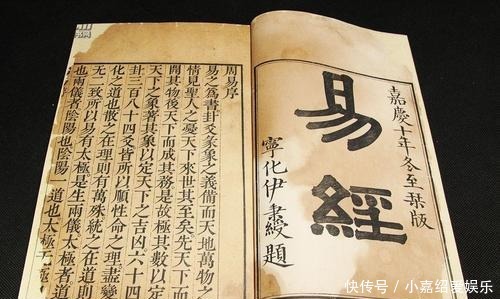 嘉慶十年冬至栞版
易經
寧化伊秉綬題
周易序
易之爲書卦爻彖象之義備而天地萬物之
情見聖人之憂天下來世其至矣先天下而
開其物後天下而成其務是故極其數以定
天下之象著其象以定天下之吉凶六十四
卦三百八十四爻皆所以順性命之理盡變
化之道也散之在理則有萬殊統之在道則
无二致所以易有太極是生兩儀太極者道
也兩儀者陰陽也陰陽一道也太極无
快传号/小嘉绍兴娱乐